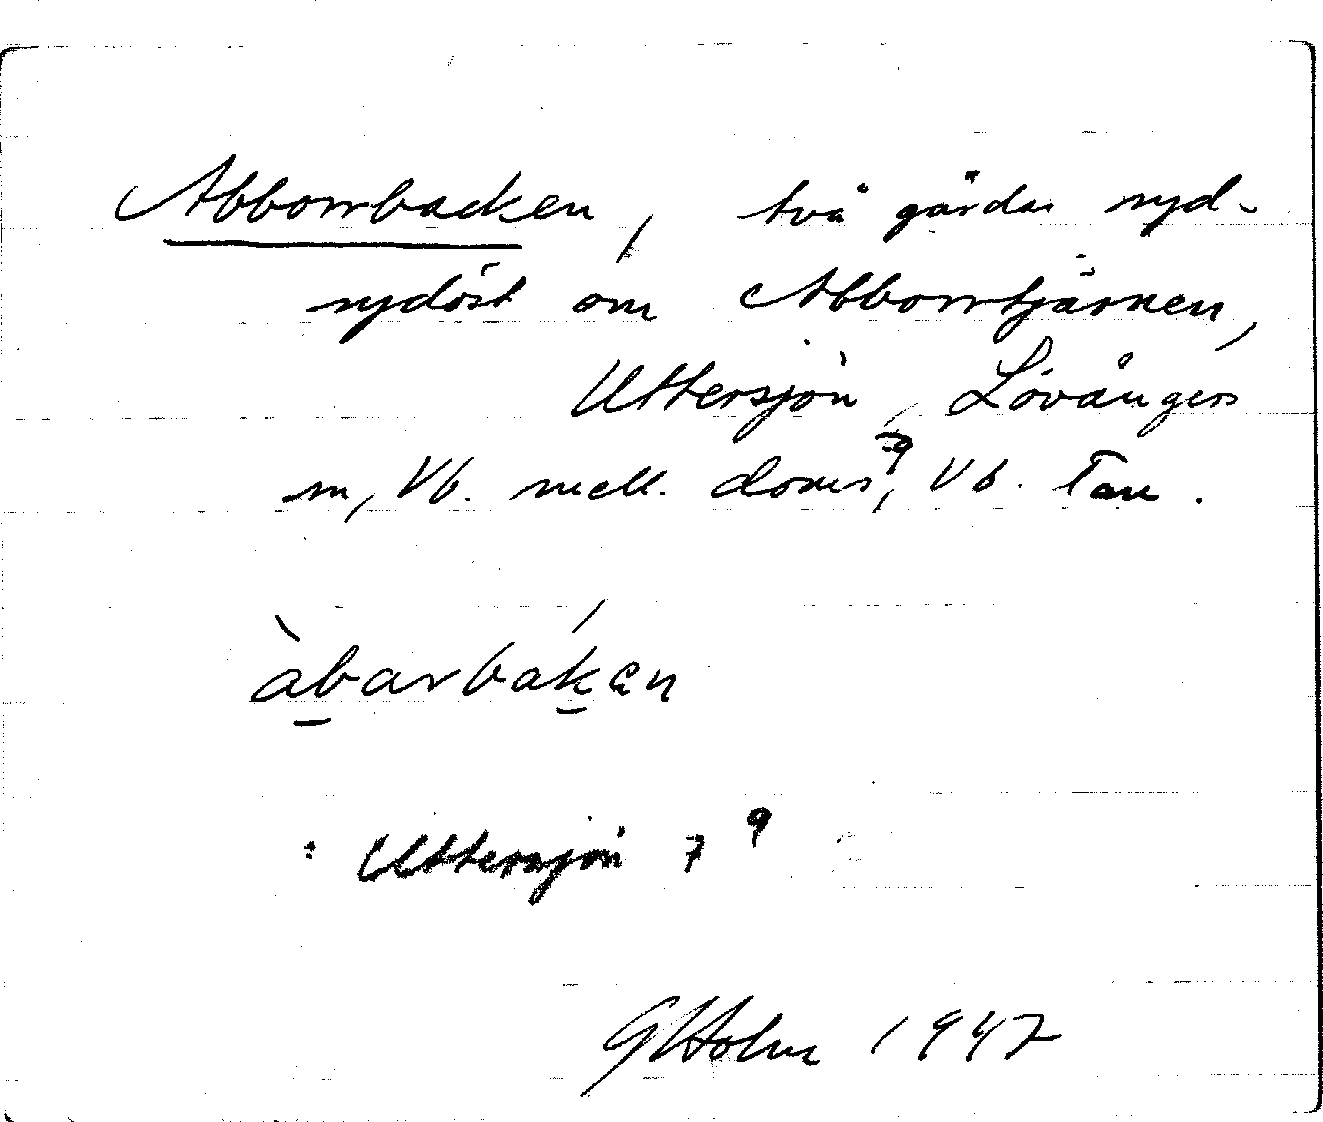 Abborrbacken, två gårdar syd-
sydöst om Abborrtjärnen,
Uttersjön, Lövångers
sn, Vb. mell. doms, Vb. län.
àbarbákan
: Uttersjön 7⁹
G Holm 1947